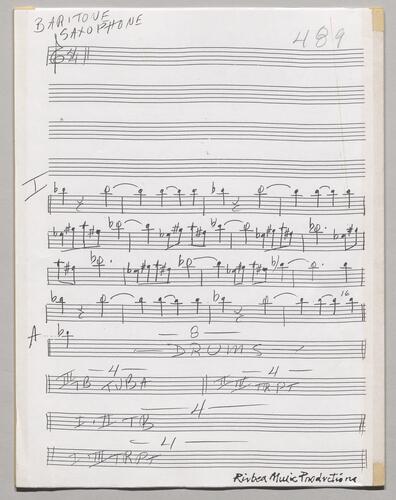 BARITONE
SAXOPHONE
489
I
16
A
8
DRUMS
4 4
III TB TUBA II III TRPT
4
I. II TB
4
I III TRPT
Rivbea Music Productions